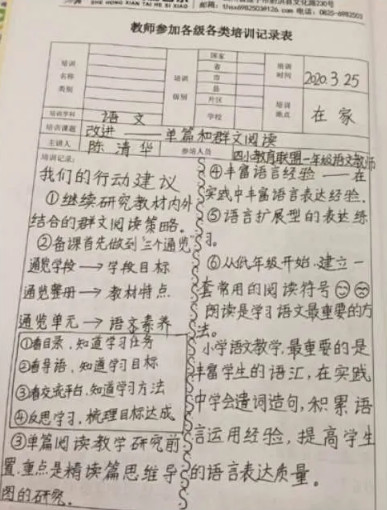 SHE HONG XIAN TAI HE ER XIAO
教师参加各级各类培训记录表
培训名称类别
培训级别
国家
省
市
县
片区
学校
培训时间
2020.3.25
培训地点
在家
培训学科
语文
培训课题
改进——单篇和群文阅读
主讲人
陈清华
参培人员
四小教育联盟一年级语文教师
培训记录:
我们的行动建议
①继续研究教材内外
结合的群文阅读策略。
②备课首先做到"三个通览"
通览学段→学段目标
通览整册→教材特点
通览单元→语文素养
①看目录、知道学习任务
②看导语,知道学习目标
③看交流平台,知道学习方法
④反思学习,梳理目标达成
③单篇阅读教学研究前
置,重点是精读篇思维导
图的研究。
④丰富语言经验——在
实践中丰富语言表达经验.
⑤语言扩展型的表达练
习。
⑥从低年级开始,建立一
套常用的阅读符号
朗读是学习语文最重要的方
法。
小学语文教学,最重要的是
丰富学生的语汇,在实践
中学会遣词造句,积累语
言运用经验,提高学生
的语言表达质量。